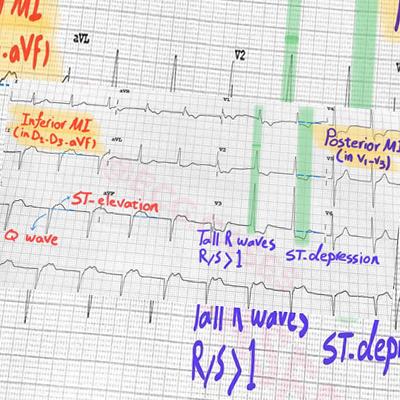 MI
.aVf)
aVL
V2
aVR
V1
V4
Inferior MI
(in D2-D3-aVF)
aVL
Posterior MI
(in V1-V3)
aVF
V3
ST-elevation
Q wave
Tall R waves
R/S>1
ST.depression
Tall R waves
R/S>1
ST.depr